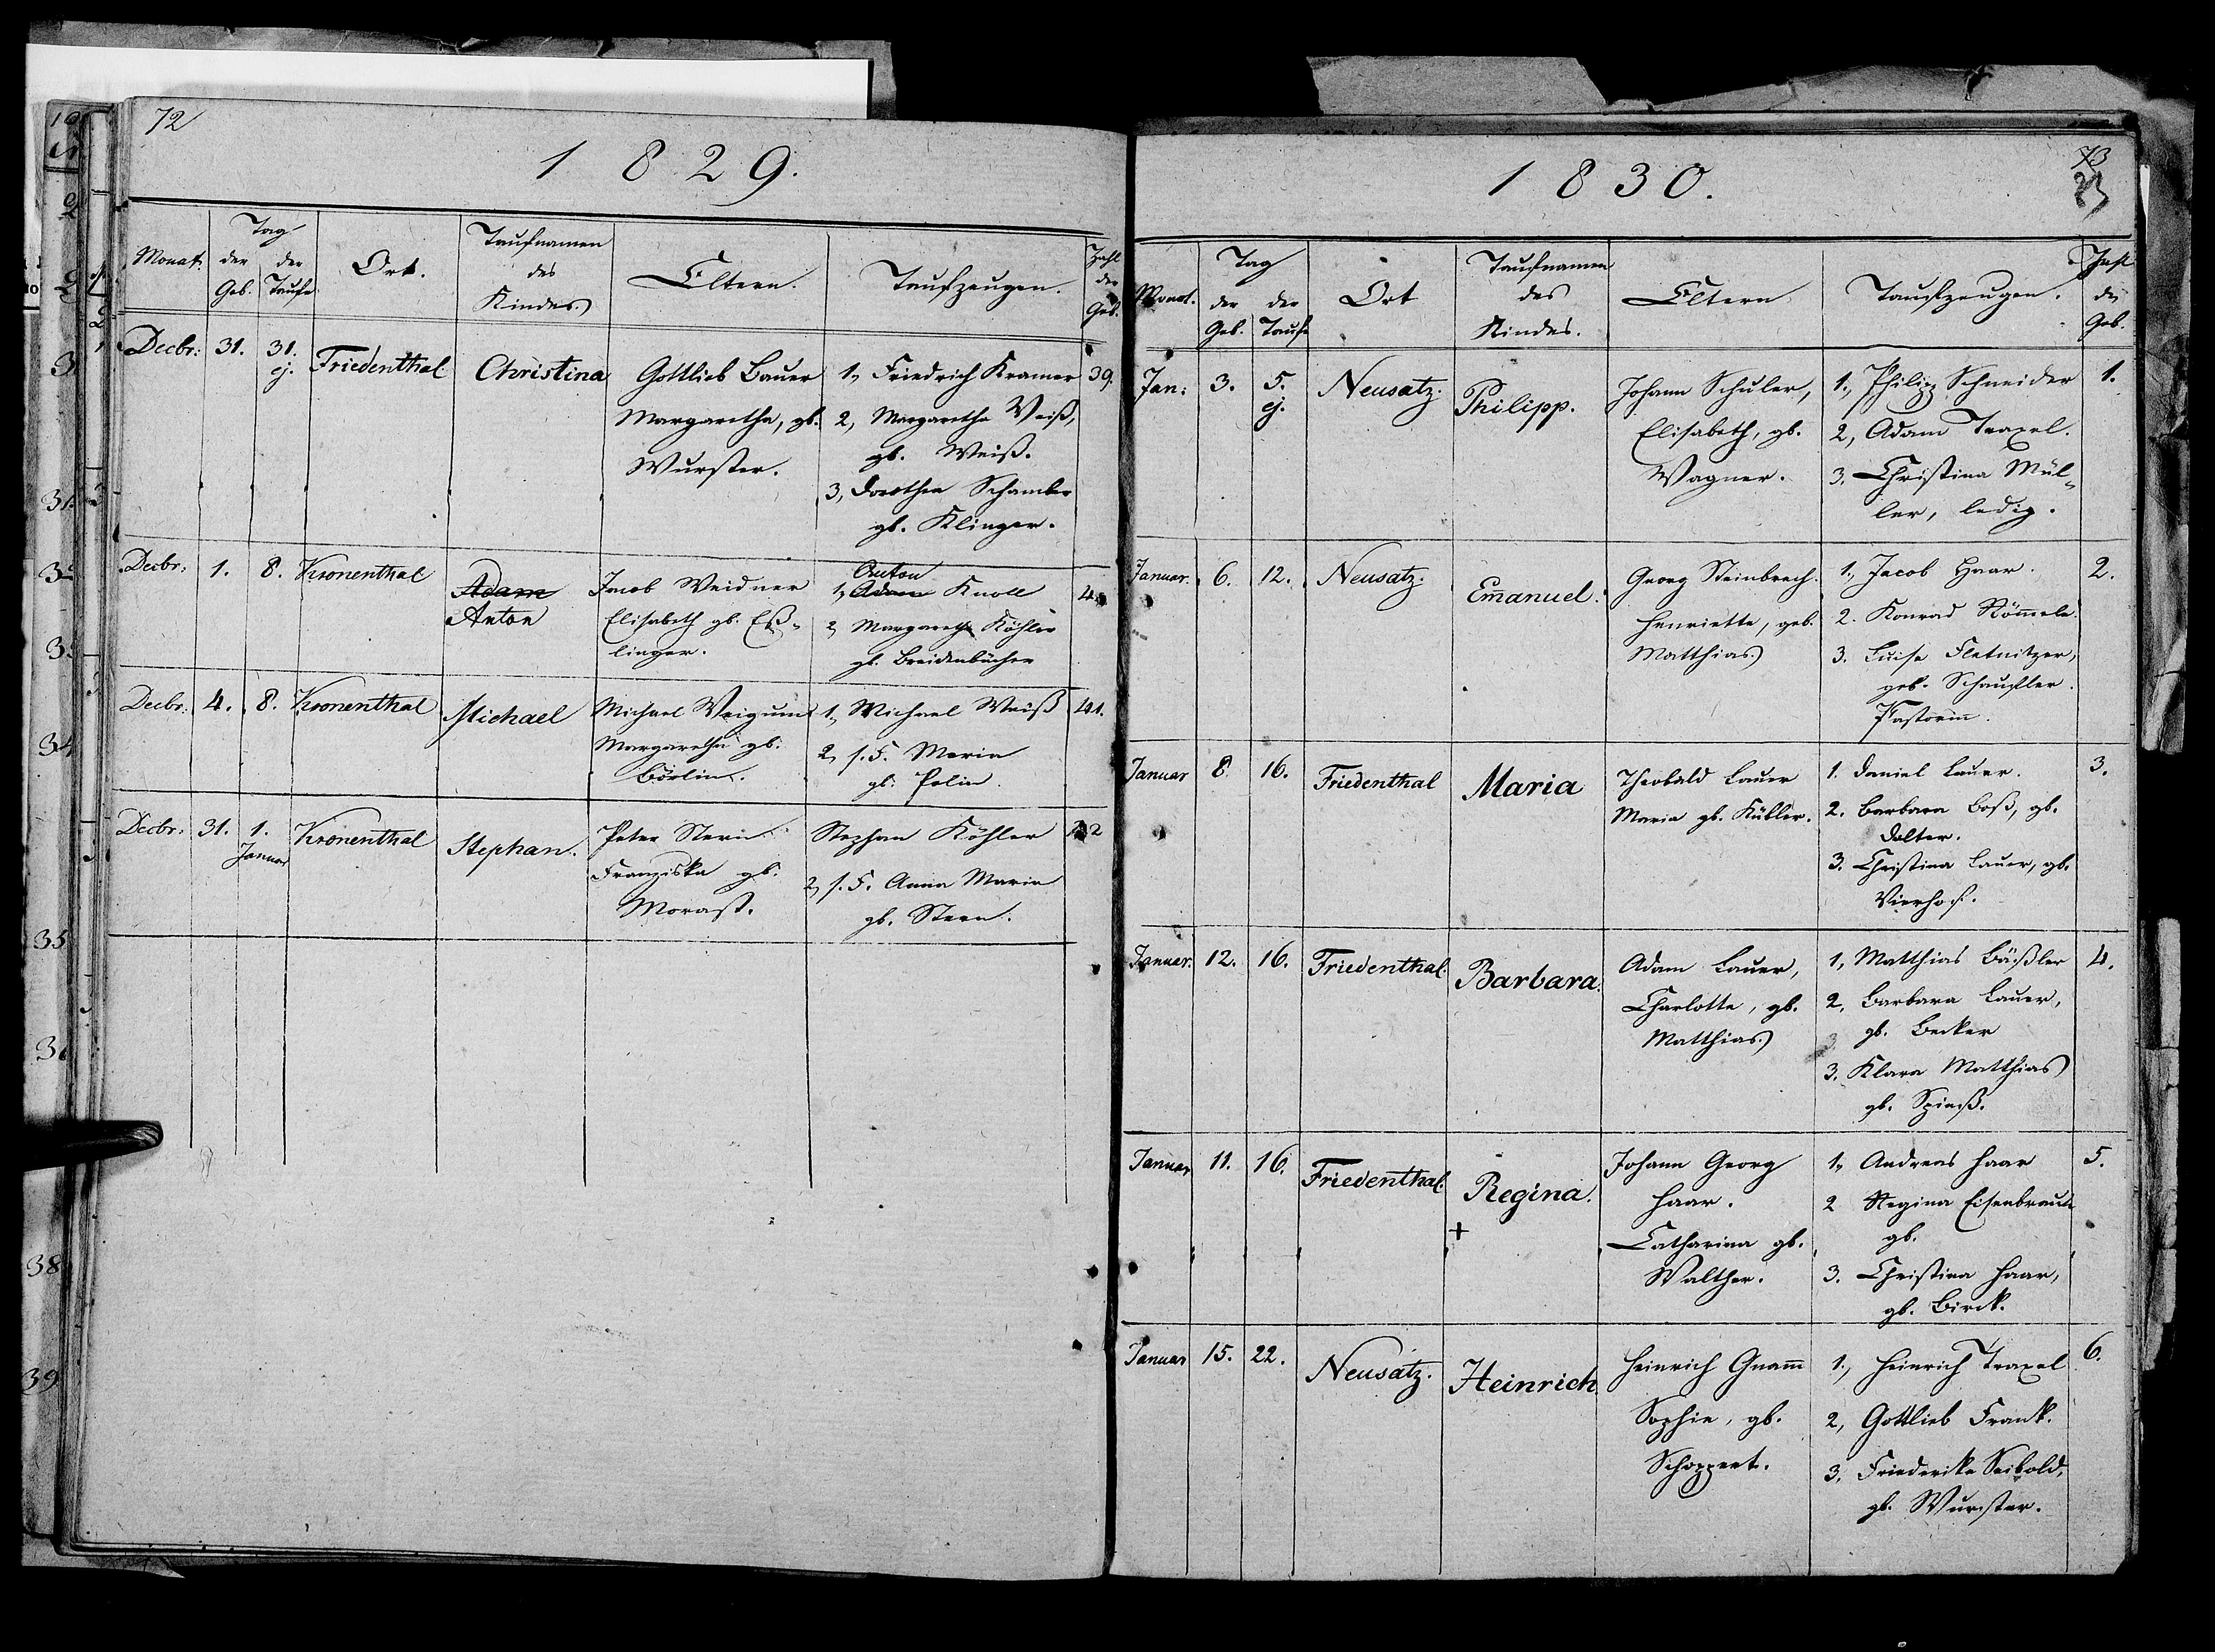 72
1829.
Monat.
Tag
der
Geb.
der
Taufe
Ort.
Taufnamen
des
Kindes
Eltern.
Taufzeugen.
Zahl
der
Geb.
Decbr: 31. 31. Friedenthal Christina Gottlieb Bauer 1, Friedrich Kramer 39.
ej.
Margaretha, gb. 2, Margaretha Weiß,
Wurster. gb. Weiß.
3, Dorothea Schamber
gb. Klinger.
Decbr: 1. 8. Kronenthal Adam Jacob Weidner 1, Adam Knoll
Anton
Anton Elisabeth gb. Eß- 2, Margaretha Köhler
linger. gb. Breidenbücher
Decbr: 4. 8. Kronenthal Michael Michael Weigum 1, Michael Weiß 41.
Margaretha gb: 2, s. F. Maria
gb:
Decbr: 31. 1. Kronenthal Stephan. Peter Stephan Köhler
Januar
Franziska gb: 2, s. F. Anna Maria
Morast. gb. Stern.
73
1830.
Monat.
Tag
der
Geb.
der
Taufe
Ort
Taufnamen
des
Kindes.
Eltern
Taufzeugen.
der
Geb.
Jan: 3. 5. Neusatz. Philipp. Johann Schuler, 1., Philipp Schneider 1.
ej.
Elisabeth, gb. 2, Adam Traxel.
Wagner. 3. Christina Mül-
ler, ledig.
Januar. 6. 12. Neusatz. Em̄anuel. Georg Steinbrech. 1., Jacob Haar. 2.
Henriette, geb. 2. Konrad Röm̄ele
Matthias 3. Luise Fletnitzer,
geb. Schaufler.
Pastorin.
Januar 8 16. Friedenthal Maria Theobald Lauer 1. Daniel Lauer. 3.
Maria gb. Kübler. 2. Barbara Boß, gb.
Dalter.
3. Christina Lauer, gb.
Vierhof.
Januar. 12. 16. Friedenthal. Barbara. Adam Lauer, 1, Matthias Bäßler 4.
Charlotte, gb. 2, Barbara Lauer,
Matthias gb. Becker
3. Klara Matthias
gb. Spieß.
Januar 11. 16. Friedenthal. Regina. Johann Georg 1., Andreas Haar 5.
+
Haar. 2 Regina Eisenbraun
gb.
Catharina gb. 3. Christina Haar,
Walther. gb. Birck.
Januar 15. 22. Neusatz. Heinrich Heinrich Gnam̄ 1., Heinrich Traxel 6.
Sophie, gb. 2, Gottlieb Frank.
Schoppert. 3. Friederike Seibold,
gb. Wurster.